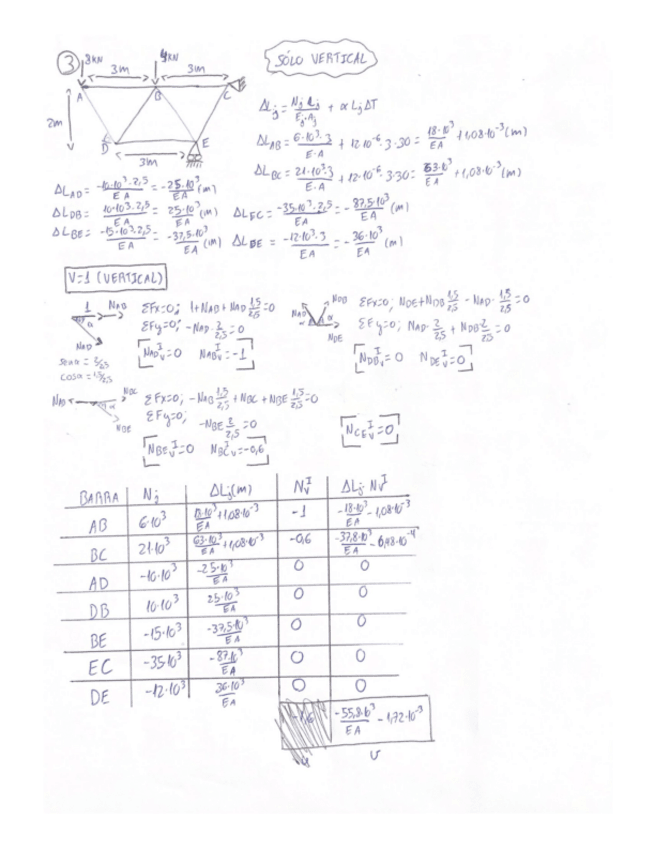 ③ 8kN 4kN SÓLO VERTICAL
3m 3m
A B C
2m
D E
3m
ΔLj = Nj Lj / Ej Aj + α Lj ΔT
ΔL AB = 6·10³·3 / E·A + 12·10⁻⁶·3·30 = 18·10³ / EA + 1,08·10⁻³ (m)
ΔL BC = 21·10³·3 / E·A + 12·10⁻⁶·3·30 = 63·10³ / EA + 1,08·10⁻³ (m)
ΔL AD = -10·10³·2,5 / EA = -25·10³ / EA (m)
ΔL DB = 10·10³·2,5 / EA = 25·10³ / EA (m) ΔL EC = -35·10³·2,5 / EA = -87,5·10³ / EA (m)
ΔL BE = -15·10³·2,5 / EA = -37,5·10³ / EA (m) ΔL DE = -12·10³·3 / EA = -36·10³ / EA (m)
V=1 (VERTICAL)
1 NAB α NAD
ΣFx=0; 1+NAB+NAD 1,5/2,5 =0
ΣFy=0; -NAD 2/2,5 =0
[NAD V I =0 NAB V I =-1]
senα = 2/2,5
cosα = 1,5/2,5
NAD NDB α α NDE
ΣFx=0; NDE+NDB 1,5/2,5 - NAD· 1,5/2,5 =0
ΣFy=0; NAD· 2/2,5 + NDB 2/2,5 =0
[NDB V I =0 NDE V I =0]
NBC α NBE
ΣFx=0; -NAB 1,5/2,5 + NBC + NBE 1,5/2,5 =0
ΣFy=0; -NBE 2/2,5 =0
[NBE V I =0 NBC V I =-0,6] [NCE V I =0]
BARRA Nj ΔLj(m) NV I ΔLj·NV I
AB 6·10³ 18·10³/EA +1,08·10⁻³ -1 -18·10³/EA -1,08·10⁻³
BC 21·10³ 63·10³/EA +1,08·10⁻³ -0,6 -37,8·10³/EA - 6,48·10⁻⁴
AD -10·10³ -25·10³/EA 0 0
DB 10·10³ 25·10³/EA 0 0
BE -15·10³ -37,5·10³/EA 0 0
EC -35·10³ -87·10³/EA 0 0
DE -12·10³ 36·10³/EA 0 0
-55,8·10³/EA - 1,72·10⁻³
v